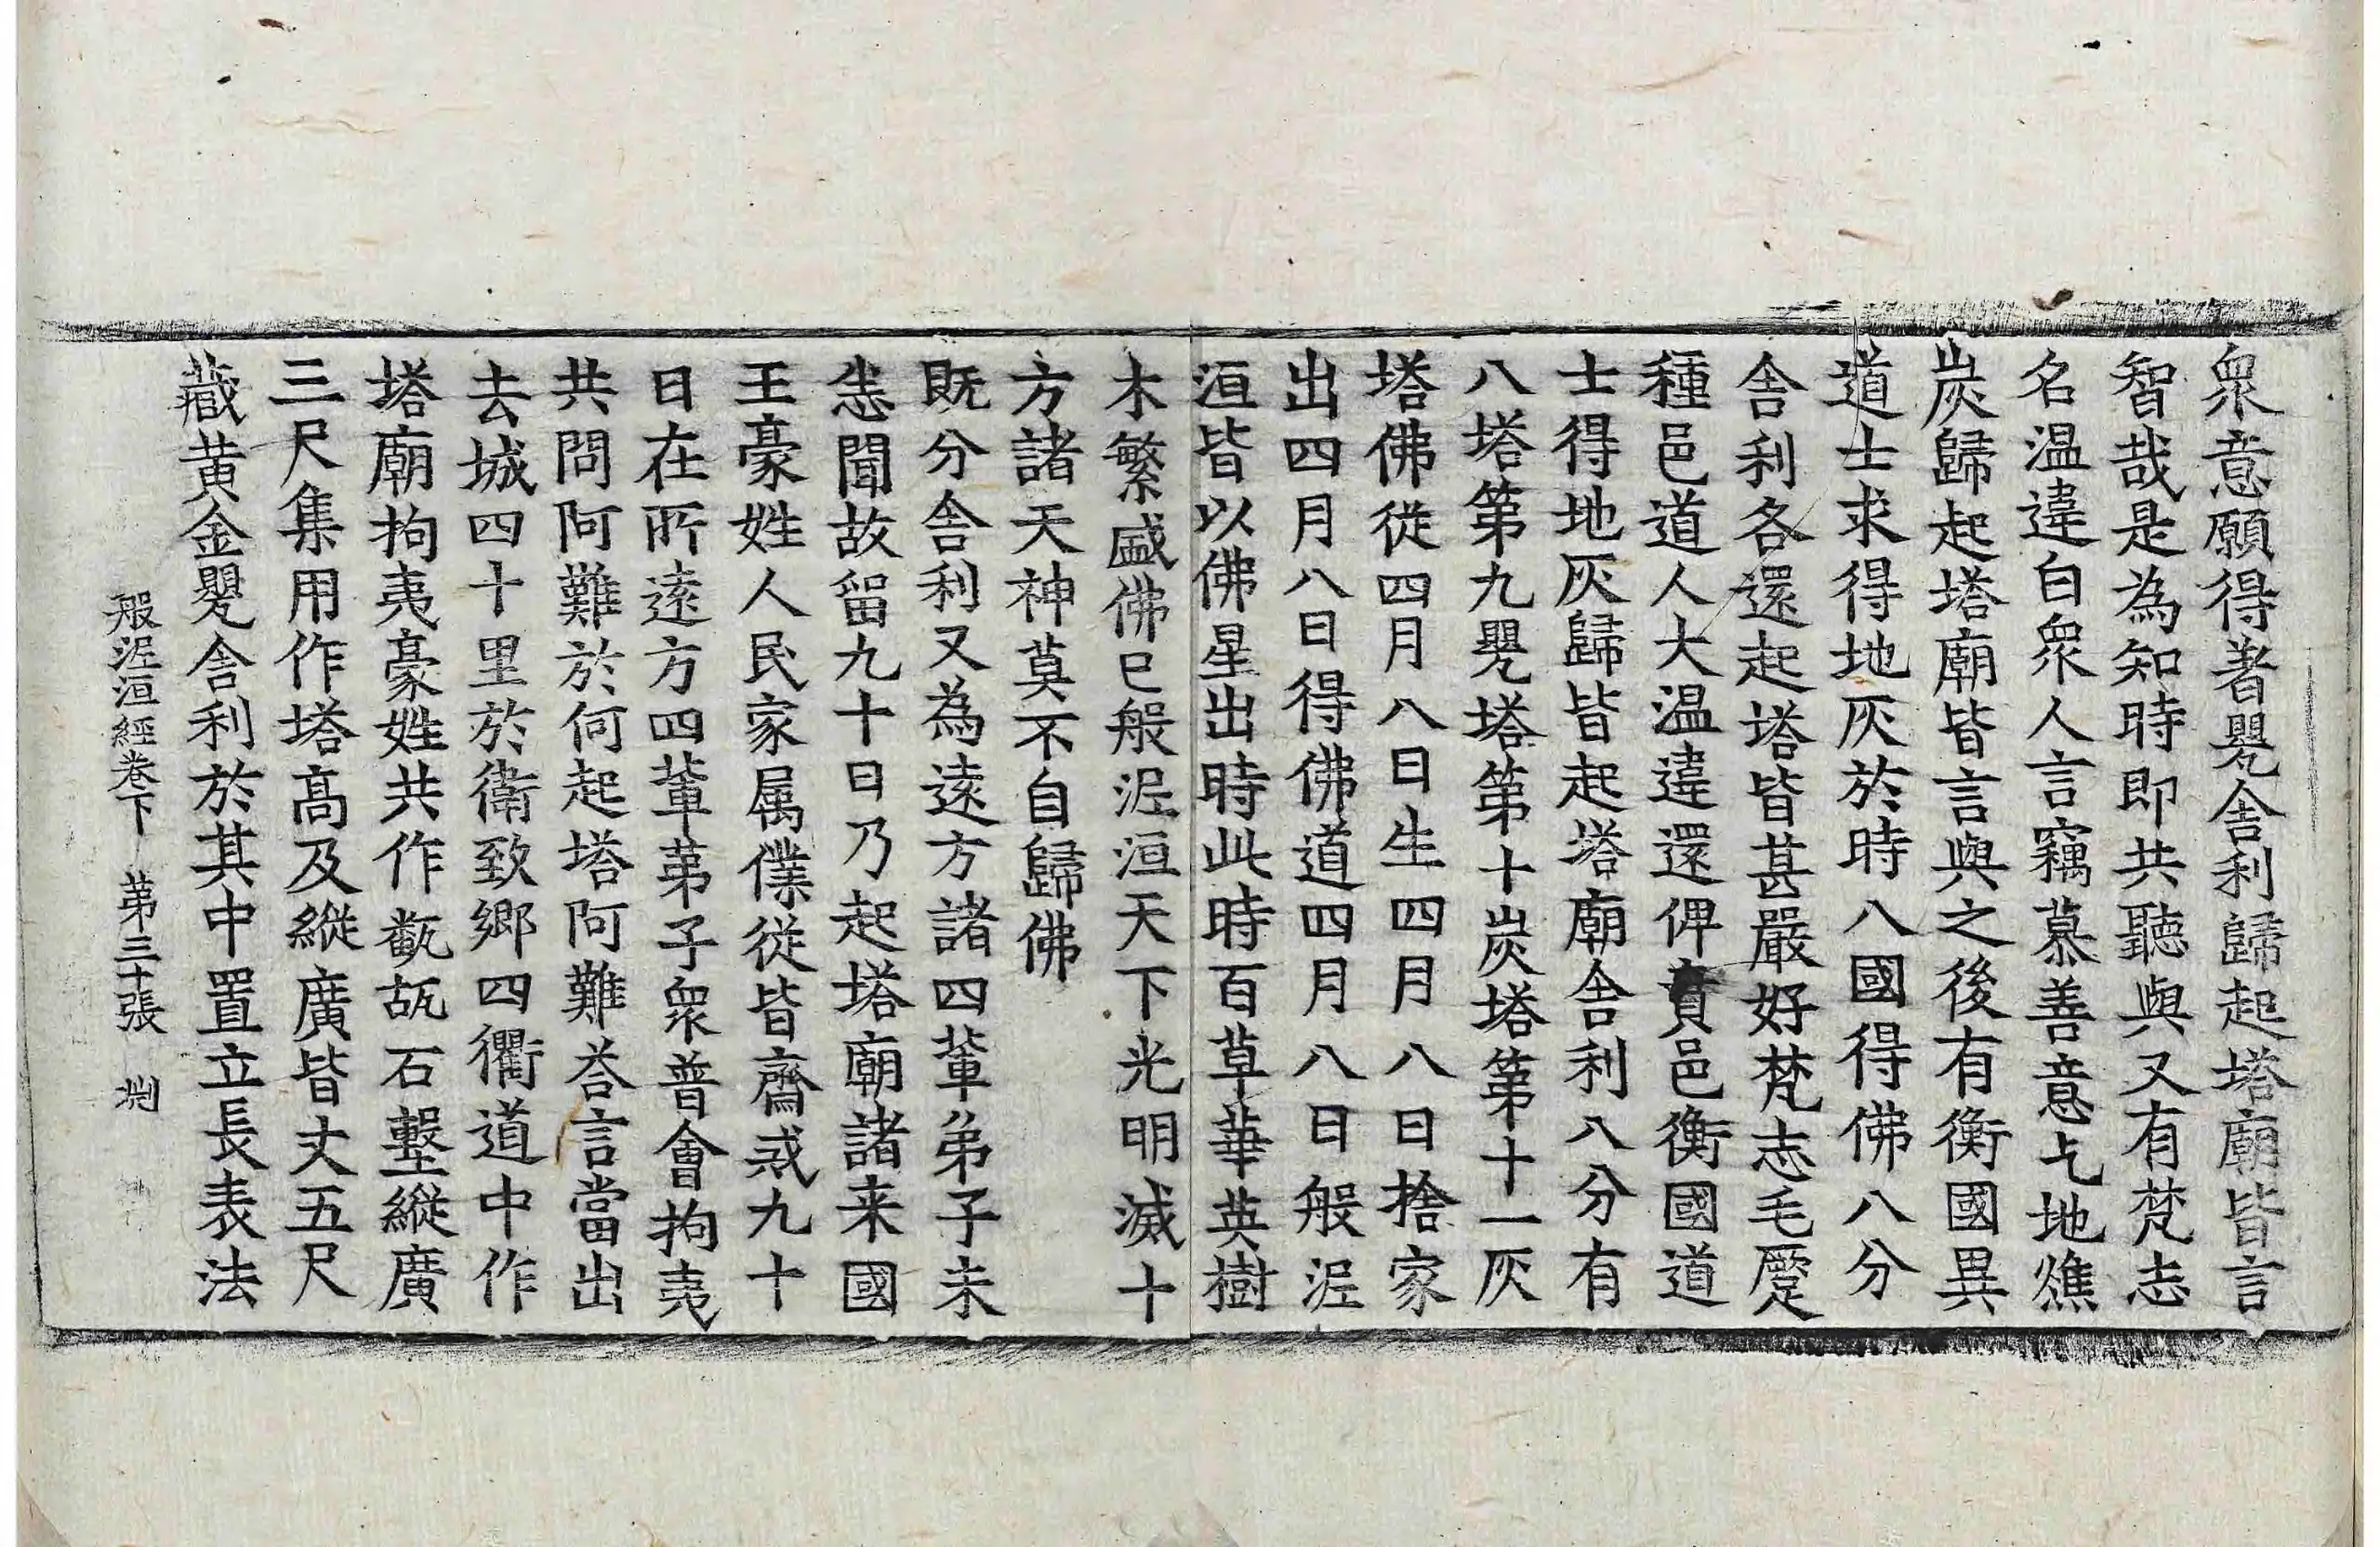 衆意願得著甖舍利歸起塔廟皆言
智哉是為知時即共聽與又有梵志
名温違白衆人言竊慕善意乞地燋
炭歸起塔廟皆言與之後有衡國異
道士求得地灰於時八國得佛八分
舍利各還起塔皆甚嚴好梵志毛蹷
種邑道人大温違還俾賁邑衡國道
士得地灰歸皆起塔廟舍利八分有
八塔第九甖塔第十炭塔第十一灰
塔佛從四月八日生四月八日捨家
出四月八日得佛道四月八日般泥
洹皆以佛星出時此時百草華英樹
木繁盛佛已般泥洹天下光明滅十
方諸天神莫不自歸佛
既分舍利又為遠方諸四輩弟子未
悉聞故留九十日乃起塔廟諸来國
王豪姓人民家属僕從皆齋戒九十
日在所遠方四輩弟子衆普會拘夷
共問阿難於何起塔阿難荅言當出
去城四十里於衛致鄉四衢道中作
塔廟拘夷豪姓共作甎瓳石墼縱廣
三尺集用作塔高及縱廣皆丈五尺
藏黄金甖舍利於其中置立長表法
般泥洹經卷下　第三十張　渕